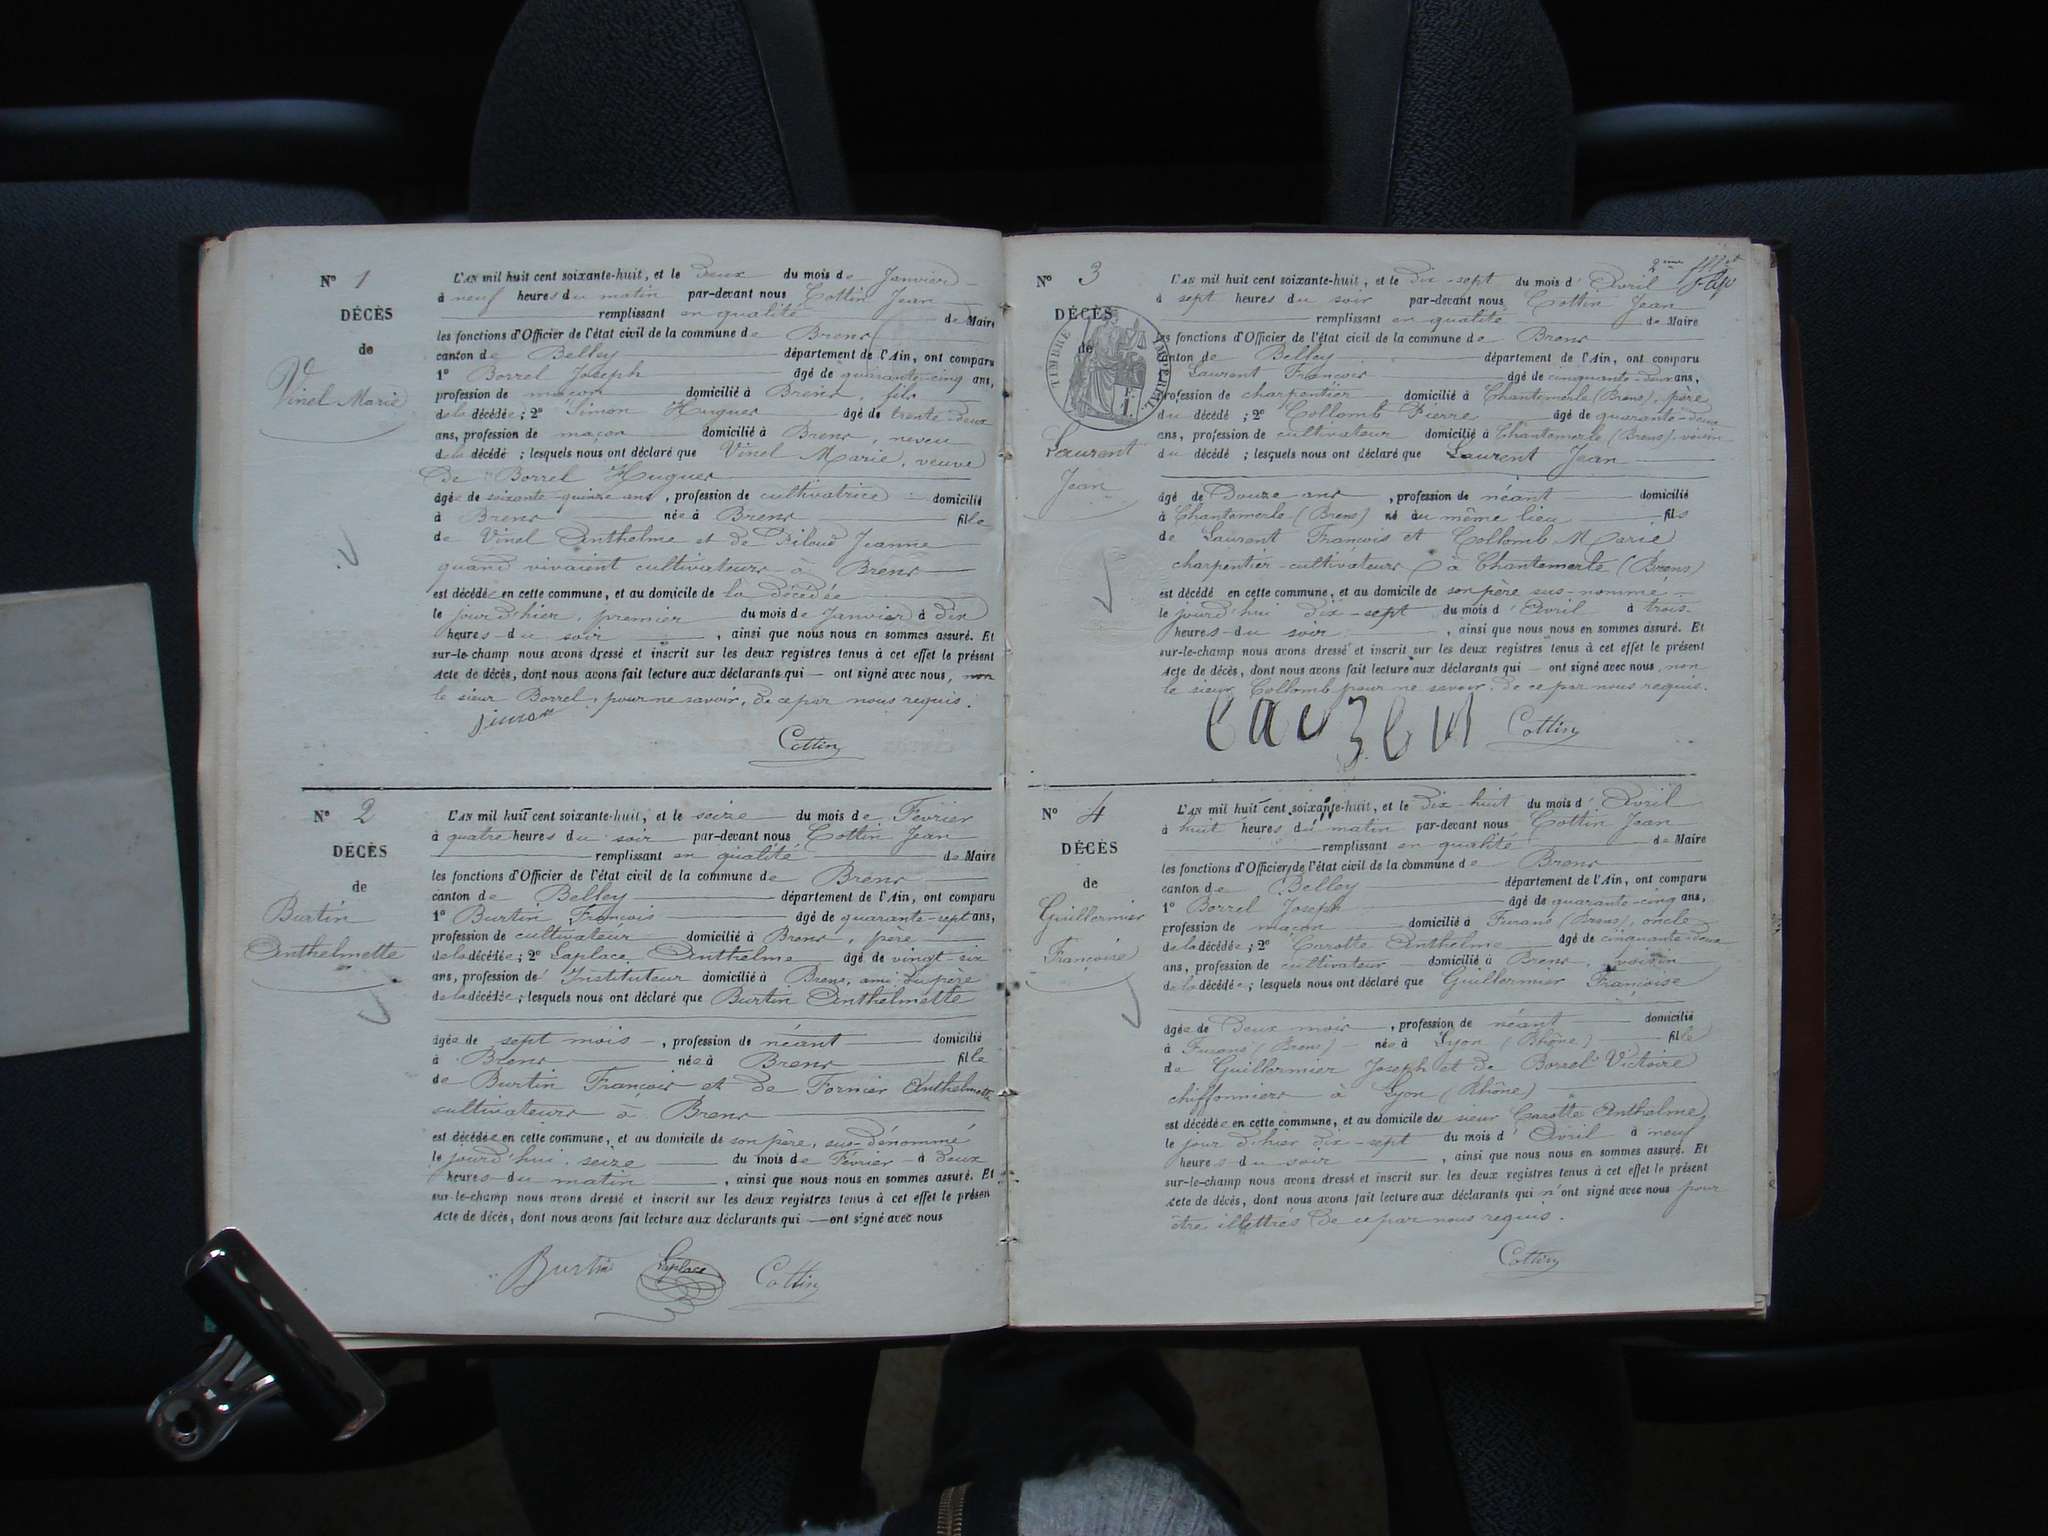 N° 1
DÉCÈS
de
Vinel Marie
L'AN mil huit cent soixante-huit, et le deux du mois de Janvier
à neuf heures du matin par-devant nous Cottin Jean
remplissant en qualité de Maire
les fonctions d'Officier de l'état civil de la commune de Brens
canton de Belley département de l'Ain, ont comparu
1° Borrel Joseph âgé de quarante-cinq ans,
profession de maçon domicilié à Brens, fils
de la décédée ; 2° Simon Hugues âgé de trente-deux
ans, profession de maçon domicilié à Brens, neveu
de la décédé ; lesquels nous ont déclaré que Vinel Marie, veuve
de Borrel Hugues
âgée de soixante-quinze ans, profession de cultivatrice domicilié
à Brens née à Brens fille
de Vinel Anthelme et de Piloud Jeanne
quand vivaient cultivateurs à Brens
est décédée en cette commune, et au domicile de la décédée
le jour d'hier, premier du mois de Janvier à dix
heures du soir, ainsi que nous nous en sommes assuré. Et
sur-le-champ nous avons dressé et inscrit sur les deux registres tenus à cet effet le présent
Acte de décès, dont nous avons fait lecture aux déclarants qui ont signé avec nous, non
le sieur Borrel, pour ne savoir, de ce par nous requis.
Simon
Cottin
N° 2
DÉCÈS
de
Burtin
Anthelmette
L'AN mil huit cent soixante-huit, et le seize du mois de Février
à quatre heures du soir par-devant nous Cottin Jean
remplissant en qualité de Maire
les fonctions d'Officier de l'état civil de la commune de Brens
canton de Belley département de l'Ain, ont comparu
1° Burtin François âgé de quarante-sept ans,
profession de cultivateur domicilié à Brens, père
de la décédée ; 2° Laplace Anthelme âgé de vingt-six
ans, profession de Instituteur domicilié à Brens, ami du père
de la décédée ; lesquels nous ont déclaré que Burtin Anthelmette
âgée de sept mois, profession de néant domicilié
à Brens née à Brens fille
de Burtin François et de Fornier Anthelmette
cultivateurs à Brens
est décédée en cette commune, et au domicile de son père, sus-dénommé
le jourd'hui seize du mois de Février à deux
heures du matin, ainsi que nous nous en sommes assuré. Et
sur-le-champ nous avons dressé et inscrit sur les deux registres tenus à cet effet le présen
Acte de décès, dont nous avons fait lecture aux déclarants qui ont signé avec nous
Burtin Laplace Cottin
2me
N° 3
DÉCÈS
de
TIMBRE IMPÉRIAL
F. 1.
Laurent
Jean
L'AN mil huit cent soixante-huit, et le dix-sept du mois d'Avril
à sept heures du soir par-devant nous Cottin Jean
remplissant en qualité de Maire
les fonctions d'Officier de l'état civil de la commune de Brens
canton de Belley département de l'Ain, ont comparu
Laurent François âgé de cinquante-deux ans,
profession de charpentier domicilié à Chantemerle (Brens), père
du décédé ; 2° Collomb Pierre âgé de quarante-deux
ans, profession de cultivateur domicilié à Chantemerle (Brens), voisin
du décédé ; lesquels nous ont déclaré que Laurent Jean
âgé de Douze ans, profession de néant domicilié
à Chantemerle (Brens) né au même lieu fils
de Laurent François et Collomb Marie
charpentier-cultivateurs à Chantemerle (Brens)
est décédé en cette commune, et au domicile de son père sus-nommé
le jourd'hui dix-sept du mois d'Avril à trois
heures du soir, ainsi que nous nous en sommes assuré. Et
sur-le-champ nous avons dressé et inscrit sur les deux registres tenus à cet effet le présent
Acte de décès, dont nous avons fait lecture aux déclarants qui ont signé avec nous, non
le sieur Collomb pour ne savoir, de ce par nous requis.
Cottin
N° 4
DÉCÈS
de
Guillermier
Françoise
L'AN mil huit cent soixante-huit, et le dix-huit du mois d'Avril
à huit heures du matin par-devant nous Cottin Jean
remplissant en qualité de Maire
les fonctions d'Officier de l'état civil de la commune de Brens
canton de Belley département de l'Ain, ont comparu
1° Borrel Joseph âgé de quarante-cinq ans,
profession de maçon domicilié à Furans (Brens), oncle
de la décédée ; 2° Carotte Anthelme âgé de cinquante-deux
ans, profession de cultivateur domicilié à Brens, voisin
de la décédée ; lesquels nous ont déclaré que Guillermier Françoise
âgée de Deux mois, profession de néant domicilié
à Furans (Brens) née à Lyon (Rhône) fille
de Guillermier Joseph et de Borrel Victoire
chiffonniers à Lyon (Rhône)
est décédée en cette commune, et au domicile du sieur Carotte Anthelme,
le jour d'hier dix-sept du mois d'Avril à neuf
heures du soir, ainsi que nous nous en sommes assuré. Et
sur-le-champ nous avons dressé et inscrit sur les deux registres tenus à cet effet le présent
Acte de décès, dont nous avons fait lecture aux déclarants qui n'ont signé avec nous pour
être illettrés de ce par nous requis.
Cottin